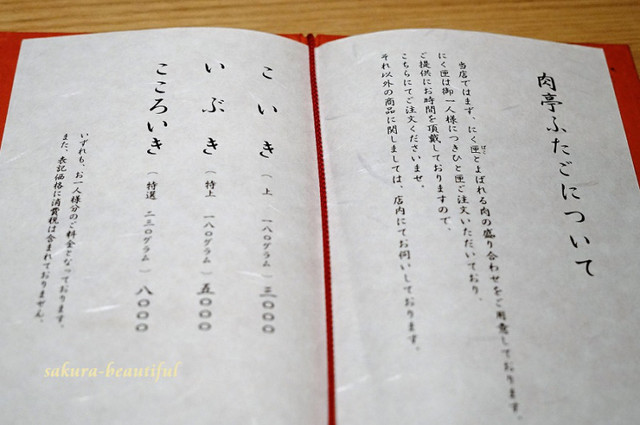 肉亭ふたごについて
当店ではまず、にく匣とよばれる肉の盛り合わせをご用意しております。
にく匣は御一人様につきひと匣ご注文いただいており、
ご提供にお時間を頂戴しておりますので、
こちらにてご注文くださいませ。
それ以外の商品に関しましては、店内にてお伺いしております。
こいき（上 一八〇グラム）三〇〇〇
いぶき（特上 一八〇グラム）五〇〇〇
こころいき（特選 二二〇グラム）八〇〇〇
いずれも、お一人様分のご料金となっております。
また、表記価格に消費税は含まれておりません。
sakura-beautiful